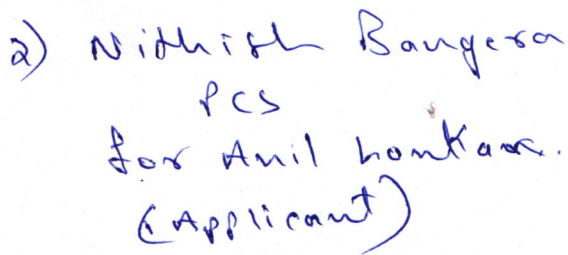 2) Nithish Bangera
PCS
for Anil Lonkar.
(Applicant)